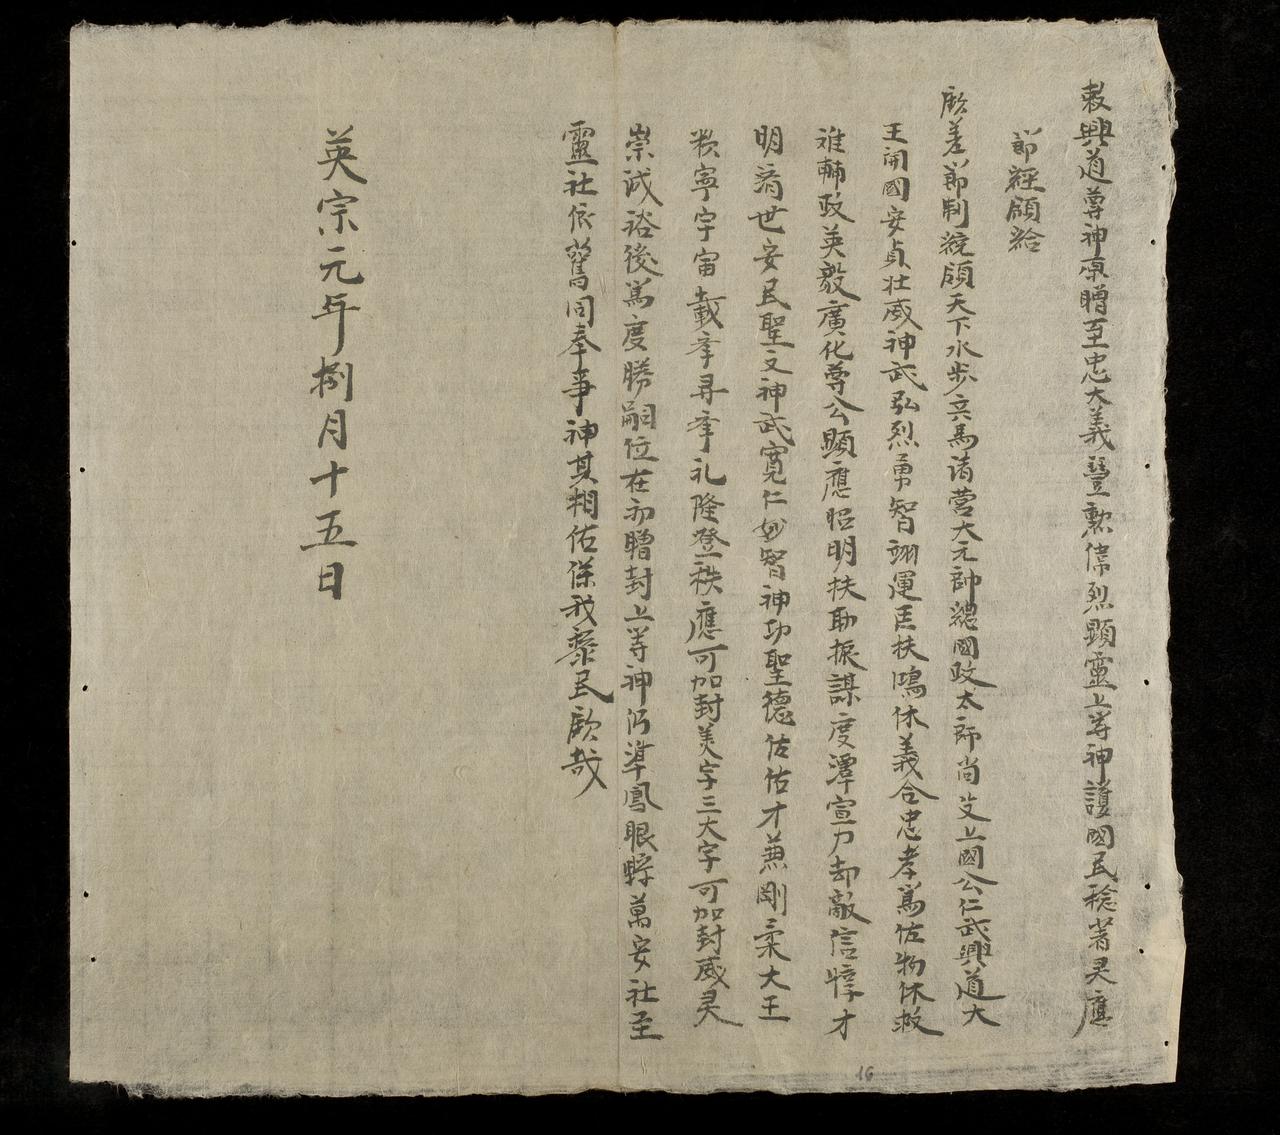 敕興道尊神原贈至忠大義豐勲偉烈顯靈上等神護國民稔著灵應
節經頒給
欽差節制統領天下水步兵馬諸營大元帥總國政太師尚父上國公仁武興道大
王開國安貞壯威神武弘烈勇智翊運匡扶鴻休義合忠孝篤佐物休救
难輔政英毅廣化尊公顯應昭明扶助振謀度潭宣力却敵信惇才
明濟世安民聖文神武寬仁妙智神功聖德佑佑才兼剛柔大王
寧宇宙載孝尋孝礼隆登秩應可加封美字三大字可加封威灵
崇誠裕後篤度勝嗣位在初贈封上等神仍準鳳眼蜉萬安社至
靈社依舊同奉事神其相佑保我黎民欽哉
英宗元年捌月十五日
16